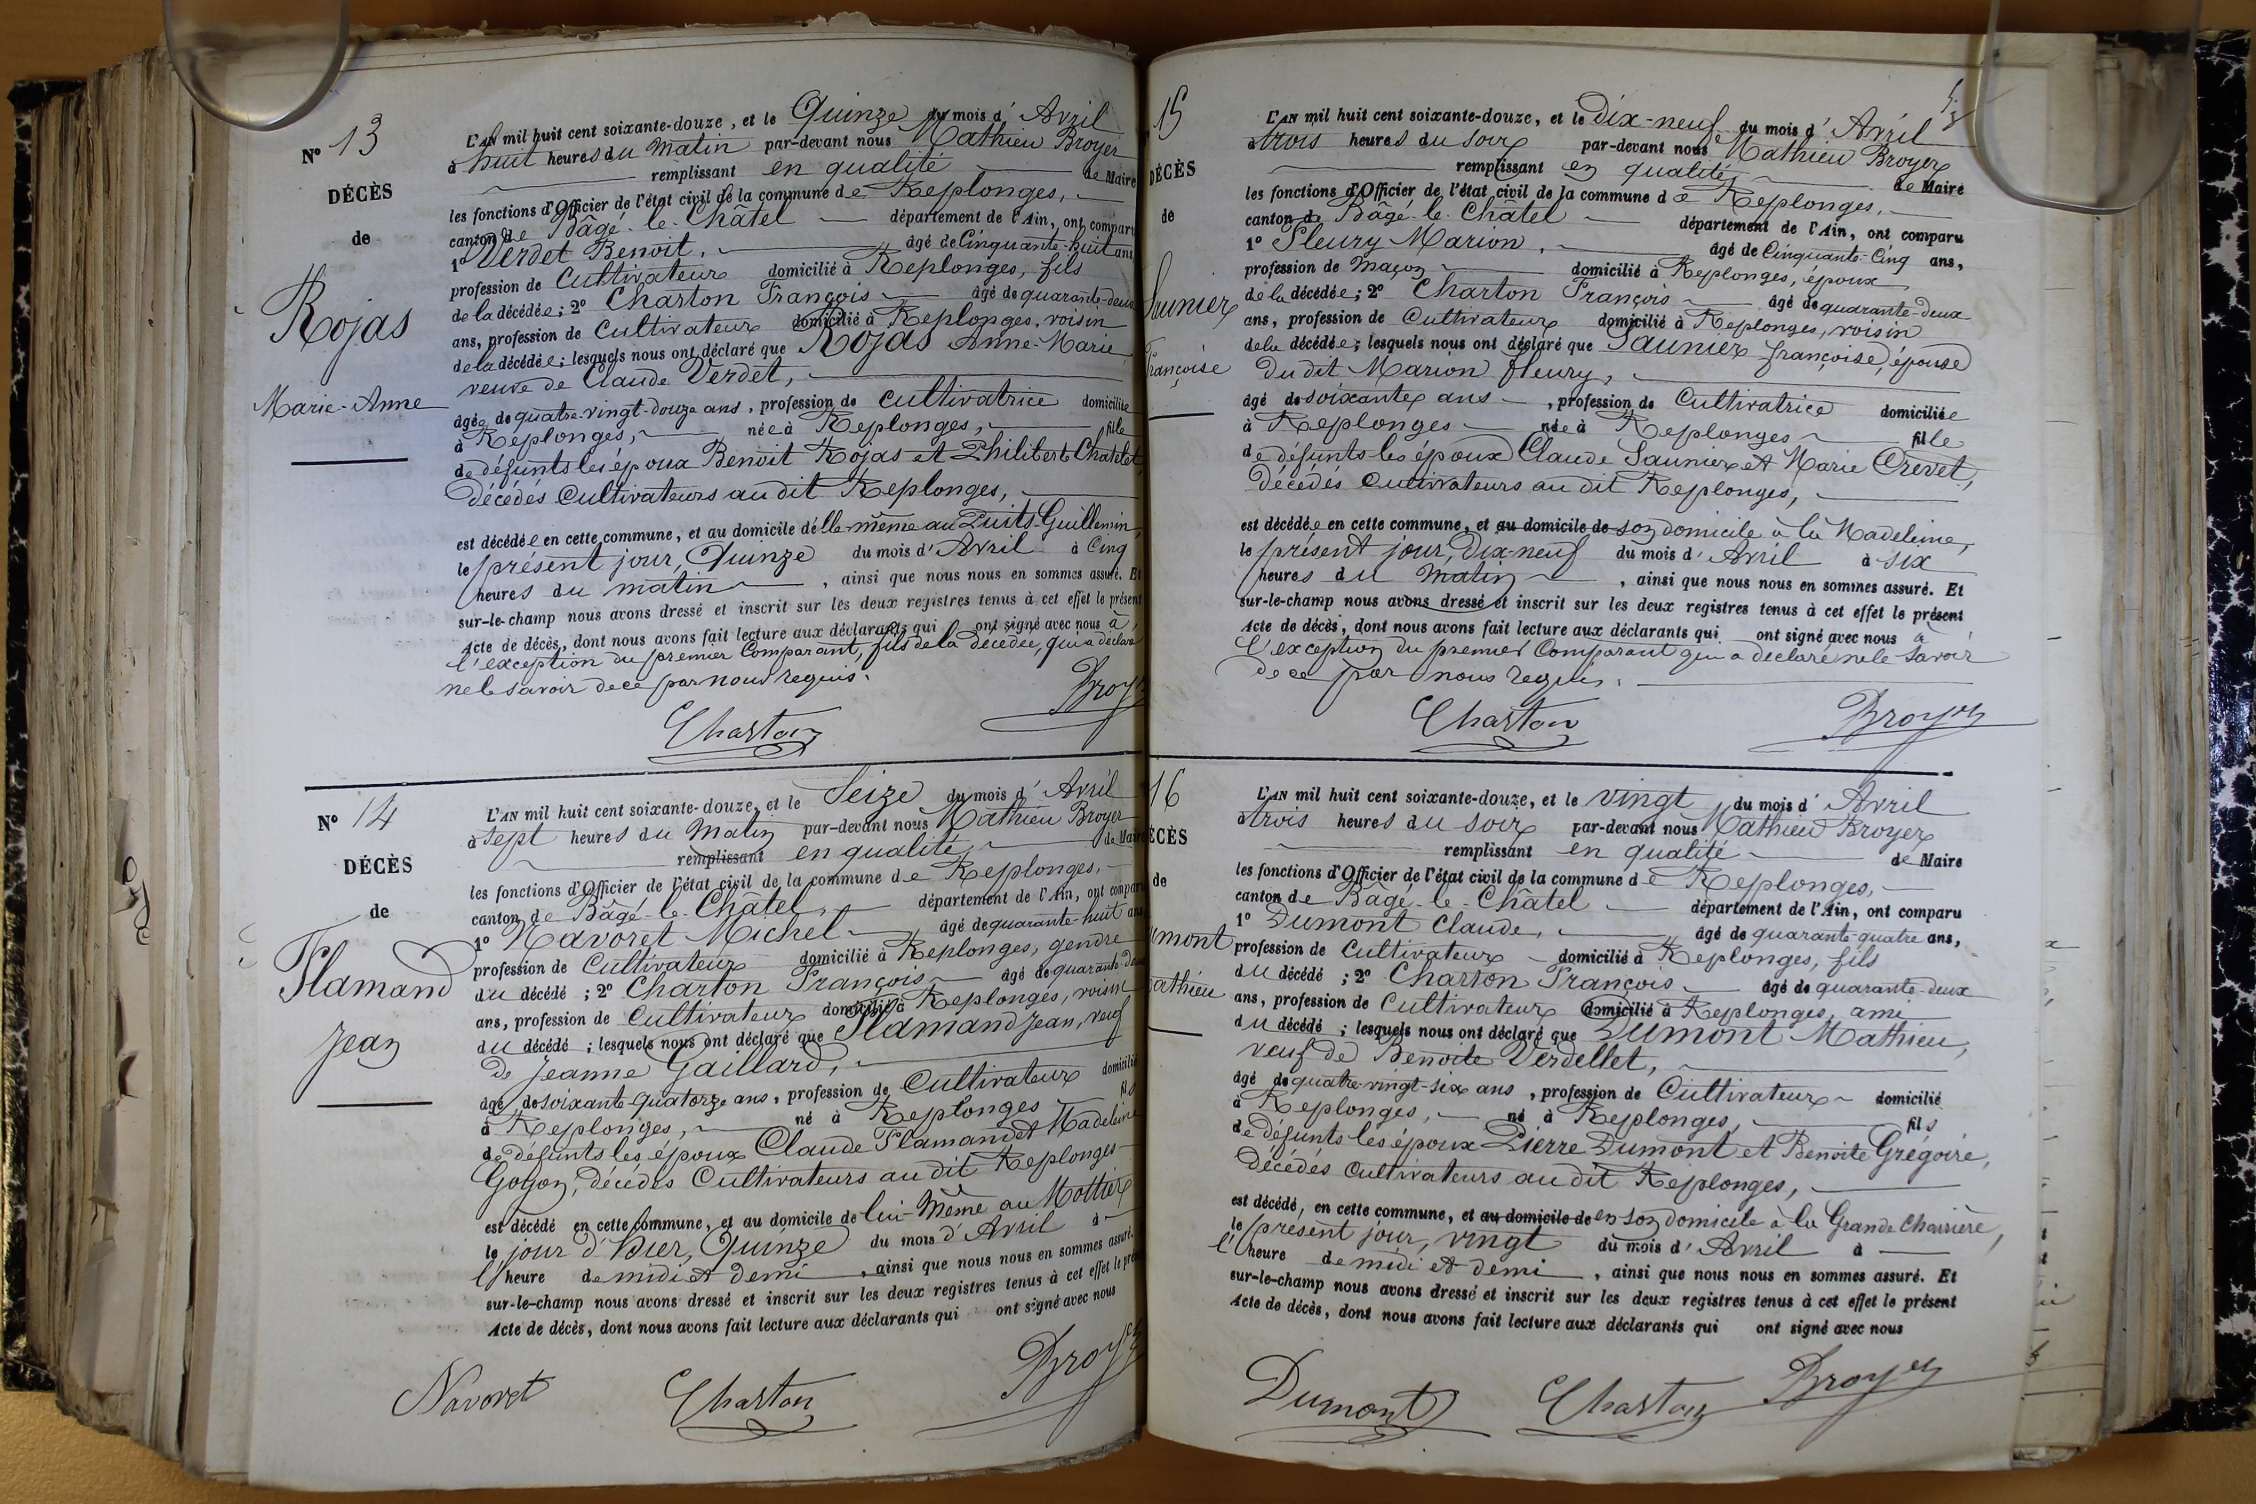 N° 13
DÉCÈS
de
Rojas
Marie-Anne
L'AN mil huit cent soixante-douze, et le Quinze du mois d'Avril
à huit heures du Matin par-devant nous Mathieu Broyer
remplissant en qualité de Maire
les fonctions d'Officier de l'état civil de la commune de Replonges,
canton de Bâgé-le-Châtel département de l'Ain, ont comparu
1° Verdet Benoit, âgé de Cinquante-huit ans
profession de Cultivateur domicilié à Replonges, fils
de la décédée; 2° Charton François âgé de quarante-deux
ans, profession de Cultivateur domicilié à Replonges, voisin
de la décédée; lesquels nous ont déclaré que Rojas Anne-Marie
veuve de Claude Verdet,
âgée de quatre-vingt-douze ans, profession de Cultivatrice domiciliée
à Replonges, née à Replonges, fille
de défunts les époux Benoit Rojas et Philiberte Chatelet,
décédés Cultivateurs au dit Replonges,
est décédée en cette commune, et au domicile d'elle-même au Puits-Guillemin,
le présent jour, Quinze du mois d'Avril à Cinq
heures du matin, ainsi que nous nous en sommes assuré. Et
sur-le-champ nous avons dressé et inscrit sur les deux registres tenus à cet effet le présent
Acte de décès, dont nous avons fait lecture aux déclarants qui ont signé avec nous à
l'exception du premier Comparant, fils de la décédée, qui a déclaré
ne le savoir de ce par nous requis.
Charton Broyer
N° 14
DÉCÈS
de
Flamand
Jean
L'AN mil huit cent soixante-douze, et le Seize du mois d'Avril
à sept heures du Matin par-devant nous Mathieu Broyer
remplissant en qualité de Maire
les fonctions d'Officier de l'état civil de la commune de Replonges,
canton de Bâgé-le-Châtel, département de l'Ain, ont comparu
1° Navoret Michel âgé de quarante-huit ans
profession de Cultivateur domicilié à Replonges, gendre
du décédé; 2° Charton François âgé de quarante-deux
ans, profession de Cultivateur domicilié à Replonges, voisin
du décédé; lesquels nous ont déclaré que Flamand Jean, veuf
de Jeanne Gaillard,
âgé de soixante-quatorze ans, profession de Cultivateur domicilié
à Replonges, né à Replonges fils
de défunts les époux Claude Flamand et Madeleine
Goyon, décédés Cultivateurs au dit Replonges
est décédé en cette commune, et au domicile de lui-Même au Mottier
le jour d'hier, Quinze du mois d'Avril à
l'heure de midi et demi, ainsi que nous nous en sommes assuré.
sur-le-champ nous avons dressé et inscrit sur les deux registres tenus à cet effet le pré
Acte de décès, dont nous avons fait lecture aux déclarants qui ont signé avec nous
Navoret Charton Broyer
15
DÉCÈS
de
Saunier
Françoise
L'AN mil huit cent soixante-douze, et le Dix-neuf du mois d'Avril
à trois heures du soir par-devant nous Mathieu Broyer
remplissant en qualité de Maire
les fonctions d'Officier de l'état civil de la commune de Replonges,
canton de Bâgé-le-Châtel département de l'Ain, ont comparu
1° Fleury Marion, âgé de Cinquante-Cinq ans,
profession de Maçon domicilié à Replonges, époux
de la décédée; 2° Charton François âgé de quarante-deux
ans, profession de Cultivateur domicilié à Replonges, voisin
de la décédée; lesquels nous ont déclaré que Saunier Françoise, épouse
du dit Marion Fleury,
âgé de soixante ans, profession de Cultivatrice domiciliée
à Replonges née à Replonges fille
de défunts les époux Claude Saunier et Marie Crevet,
Décédés Cultivateurs au dit Replonges,
est décédée en cette commune, et au domicile de son domicile à la Madeleine,
le présent jour, Dix-neuf du mois d'Avril à six
heures du Matin, ainsi que nous nous en sommes assuré. Et
sur-le-champ nous avons dressé et inscrit sur les deux registres tenus à cet effet le présent
Acte de décès, dont nous avons fait lecture aux déclarants qui ont signé avec nous à
l'exception du premier Comparant qui a déclaré ne le savoir
de ce par nous requis.
Charton Broyer
16
ÉCÈS
de
umont
athieu
L'AN mil huit cent soixante-douze, et le vingt du mois d'Avril
à trois heures du soir par-devant nous Mathieu Broyer
remplissant en qualité de Maire
les fonctions d'Officier de l'état civil de la commune de Replonges,
canton de Bâgé-le-Châtel département de l'Ain, ont comparu
1° Dumont Claude, âgé de quarante-quatre ans,
profession de Cultivateur domicilié à Replonges, fils
du décédé; 2° Charton François âgé de quarante-deux
ans, profession de Cultivateur domicilié à Replonges, ami
du décédé; lesquels nous ont déclaré que Dumont Mathieu,
veuf de Benoite Verdellet,
âgé de quatre-vingt-six ans, profession de Cultivateur domicilié
à Replonges, né à Replonges, fils
de défunts les époux Pierre Dumont et Benoite Grégoire,
Décédés Cultivateurs au dit Replonges,
est décédé, en cette commune, et au domicile de en son domicile à la Grande Charrière,
le présent jour, vingt du mois d'Avril à
l'heure de midi et demi, ainsi que nous nous en sommes assuré. Et
sur-le-champ nous avons dressé et inscrit sur les deux registres tenus à cet effet le présent
Acte de décès, dont nous avons fait lecture aux déclarants qui ont signé avec nous
Dumont Charton Broyer